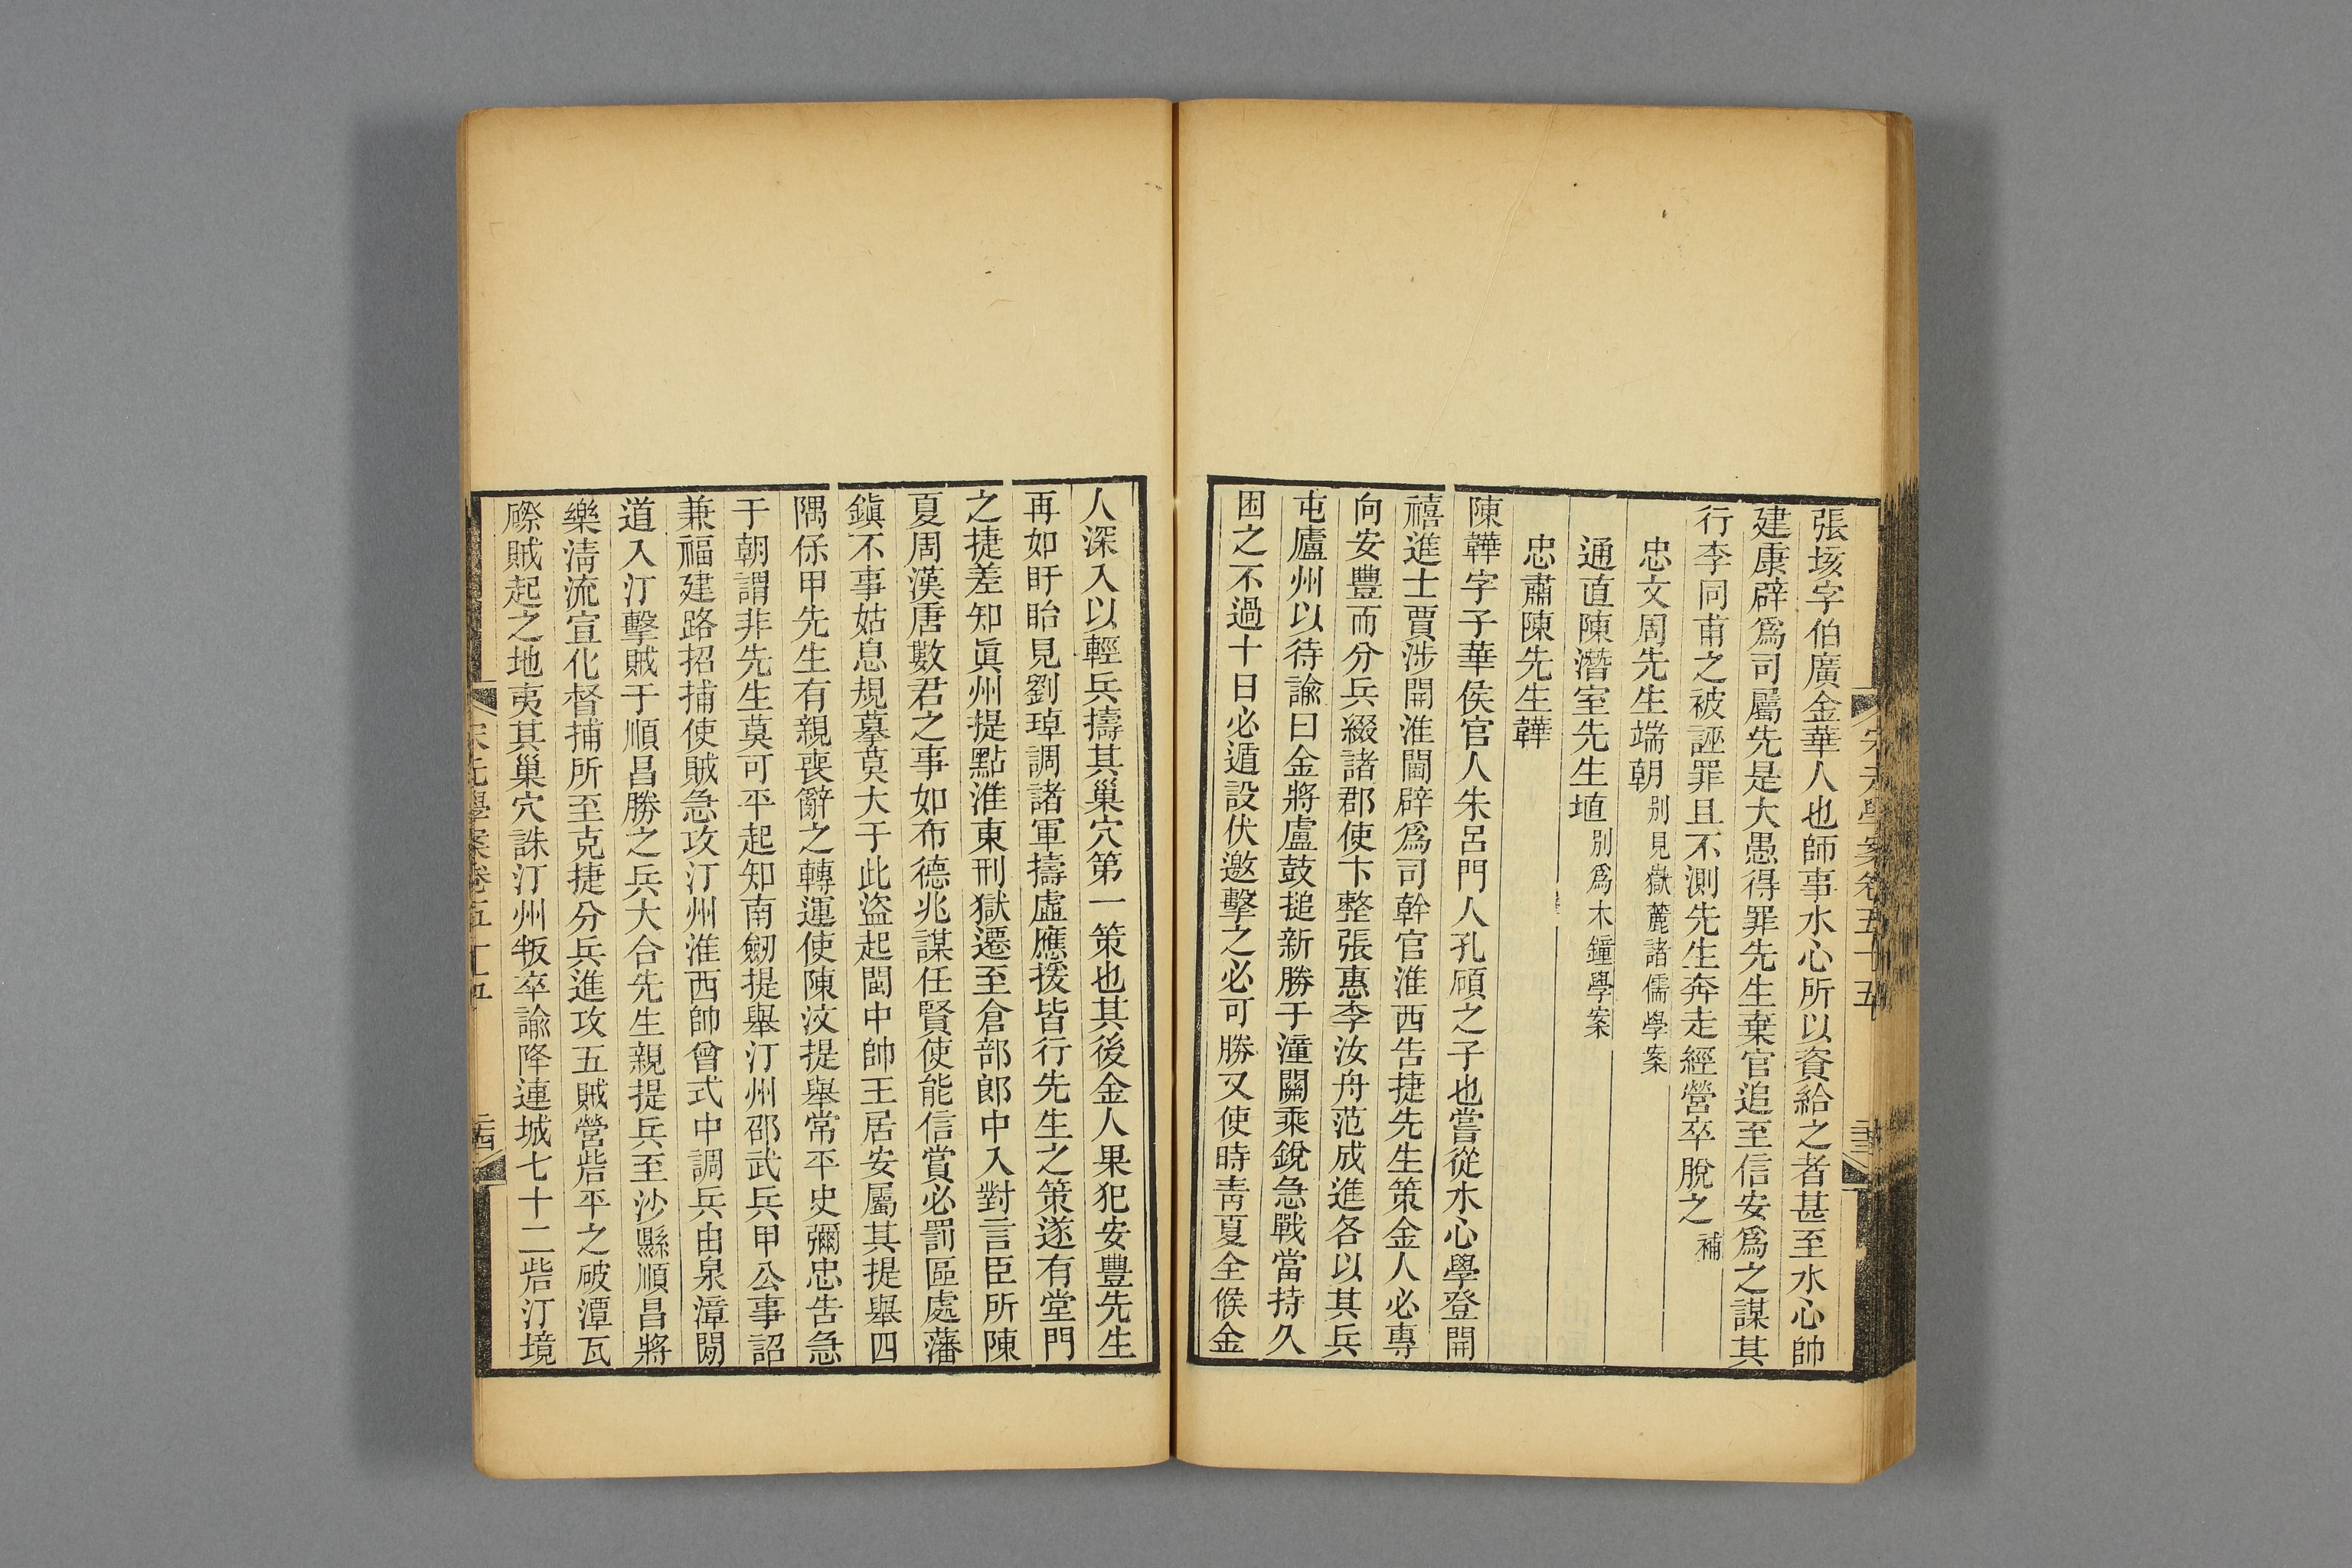 宋元學案卷五十五
張垓字伯廣金華人也師事水心所以資給之者甚至水心帥
建康辟爲司屬先是大愚得罪先生棄官追至信安爲之謀其
行李同甫之被誣罪且不測先生奔走經營卒脫之補
忠文周先生端朝別見嶽麓諸儒學案
通直陳潛室先生埴別爲木鐘學案
忠肅陳先生韡
陳韡字子華侯官人朱呂門人孔碩之子也嘗從水心學登開
禧進士賈涉開淮閫辟爲司幹官淮西告捷先生策金人必專
向安豐而分兵綴諸郡使卞整張惠李汝舟范成進各以其兵
屯廬州以待諭曰金將盧鼓搥新勝于潼關乘銳急戰當持久
困之不過十日必遁設伏邀擊之必可勝又使時青夏全候金
人深入以輕兵擣其巢穴第一策也其後金人果犯安豐先生
再如盱眙見劉琸調諸軍擣虛應援皆行先生之策遂有堂門
之捷差知眞州提點淮東刑獄遷至倉部郎中入對言臣所陳
夏周漢唐數君之事如布德兆謀任賢使能信賞必罰區處藩
鎭不事姑息規摹莫大于此盜起閩中帥王居安屬其提舉四
隅保甲先生有親喪辭之轉運使陳汶提舉常平史彌忠告急
于朝謂非先生莫可平起知南劒提舉汀州邵武兵甲公事詔
兼福建路招捕使賊急攻汀州淮西帥曾式中調兵由泉漳閒
道入汀擊賊于順昌勝之兵大合先生親提兵至沙縣順昌將
樂清流宣化督捕所至克捷分兵進攻五賊營砦平之破潭瓦
磜賊起之地夷其巢穴誅汀州叛卒諭降連城七十二砦汀境
宋元學案卷五十五